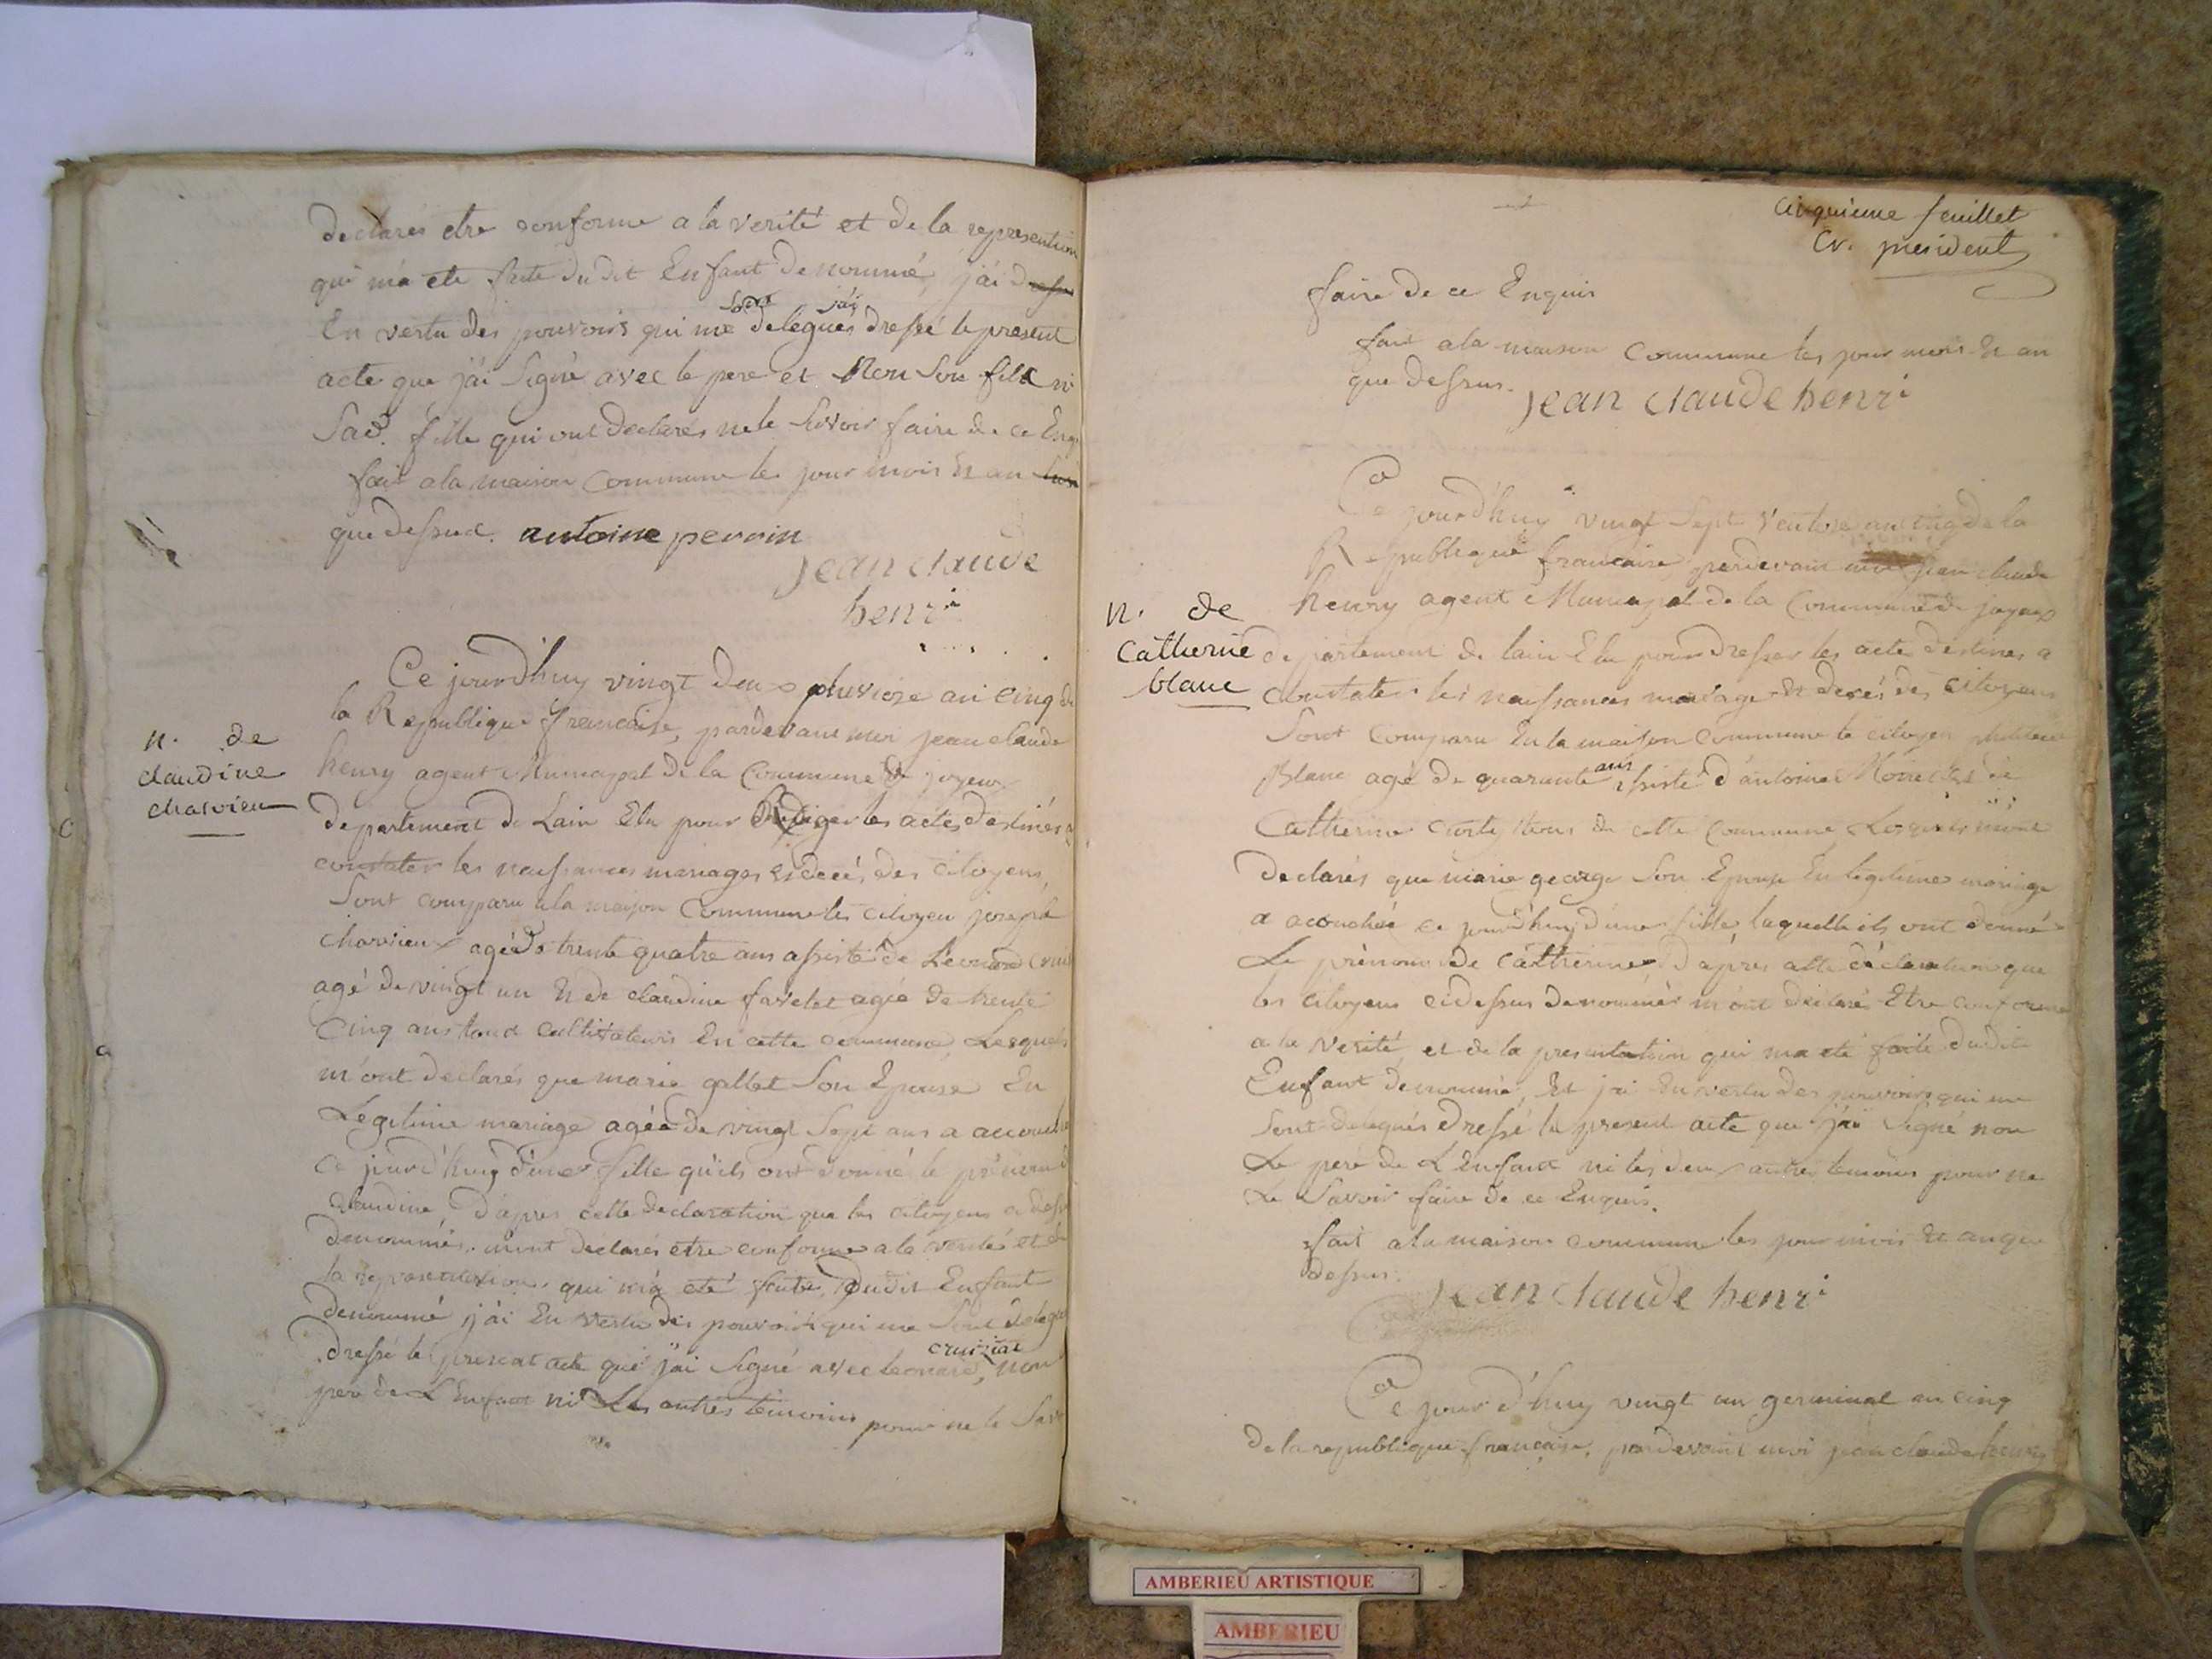 declarés etre conforme a la verité et de la representation
qui m'a eté faite dudit Enfant denommé, j'ai
En vertu des pouvoirs qui me sont delegués j'ai dressé le present
acte que j'ai Signé avec le pere et Non Son fils ni
Sad. fille qui ont declarés ne le Savoir faire de ce Enq
fait a la maison Commune les jour mois Et an
que dessus. antoine perrin
jean claude
henri
n. de
claudine
charvieu
Ce jourd'huy vingt deux pluviose an cinq de
la Republique francaise, pardevant moi jean claude
henry agent Municipal de la Commune de joyeux
departement de Lain Elu pour Rediger les actes destinés a
constater les naissances mariages et decés des citoyens,
Sont comparu a la maison Commune les citoyen joseph
charvieux agé de trente quatre ans assisté de Léonard
agé de vingt un Et de claudine favelet agée de trente
Cinq ans tous cultivateurs En cette commune Lesquels
m'ont declarés que marie gallet Son Epouse En
Legitime mariage agée de vingt Sept ans a accouché
Ce jourd'huy d'une fille qu'ils ont donné le prénom de
claudine, d'apres cette declaration que les citoyens
denommés m'ont declarés etre conforme a la verité et de
la representation qui m'a eté faite dudit Enfant
denommé j'ai En vertu des pouvoirs qui me Sont delegués
dressé le present acte que j'ai Signé avec leonard cruiziat, non
pere de L'Enfant ni Les autres temoins pour ne le Savoir
cinquieme feuillet
Cr. president
faire de ce Enquis
fait a la maison Commune les jour mois Et an
que dessus.
jean claude henri
n. de
Catherine
blanc
Ce jourd'huy vingt Sept Ventose an cinq de la
Republique francaise, pardevant moi jean claude
henry agent Municipal de la Commune de joyeux
departement de lain Elu pour dresser les acte destines a
constater les naissances mariage Et decés des citoyens
Sont Comparu En la maison Commune le citoyen
Blanc agé de quarante ans assisté d'antoine
Catherine tous de cette Commune Lesquels m'ont
declarés que marie george Son Epouse En legitime mariage
a acouchée ce jourd'huy d'une fille laquelle ils ont donné
Le prénom de Catherine d'apres cette déclaration que
les citoyens cidessus denommés m'ont déclaré Etre conforme
a la verité et de la presentation qui ma eté faite dudit
Enfant denommé, Et j'ai En vertu des pouvoirs qui me
Sont delegués dressé le present acte que j'ai Signé non
Le pere de L'Enfant ni les deux autres temoins pour ne
Le Savoir faire de ce Enquis.
fait a la maison commune les jour mois Et an que
dessus.
jean claude henri
Ce jourd'huy vingt un germinal an cinq
de la republique francaise, pardevant moi jean claude henry
AMBERIEU ARTISTIQUE
AMBERIEU